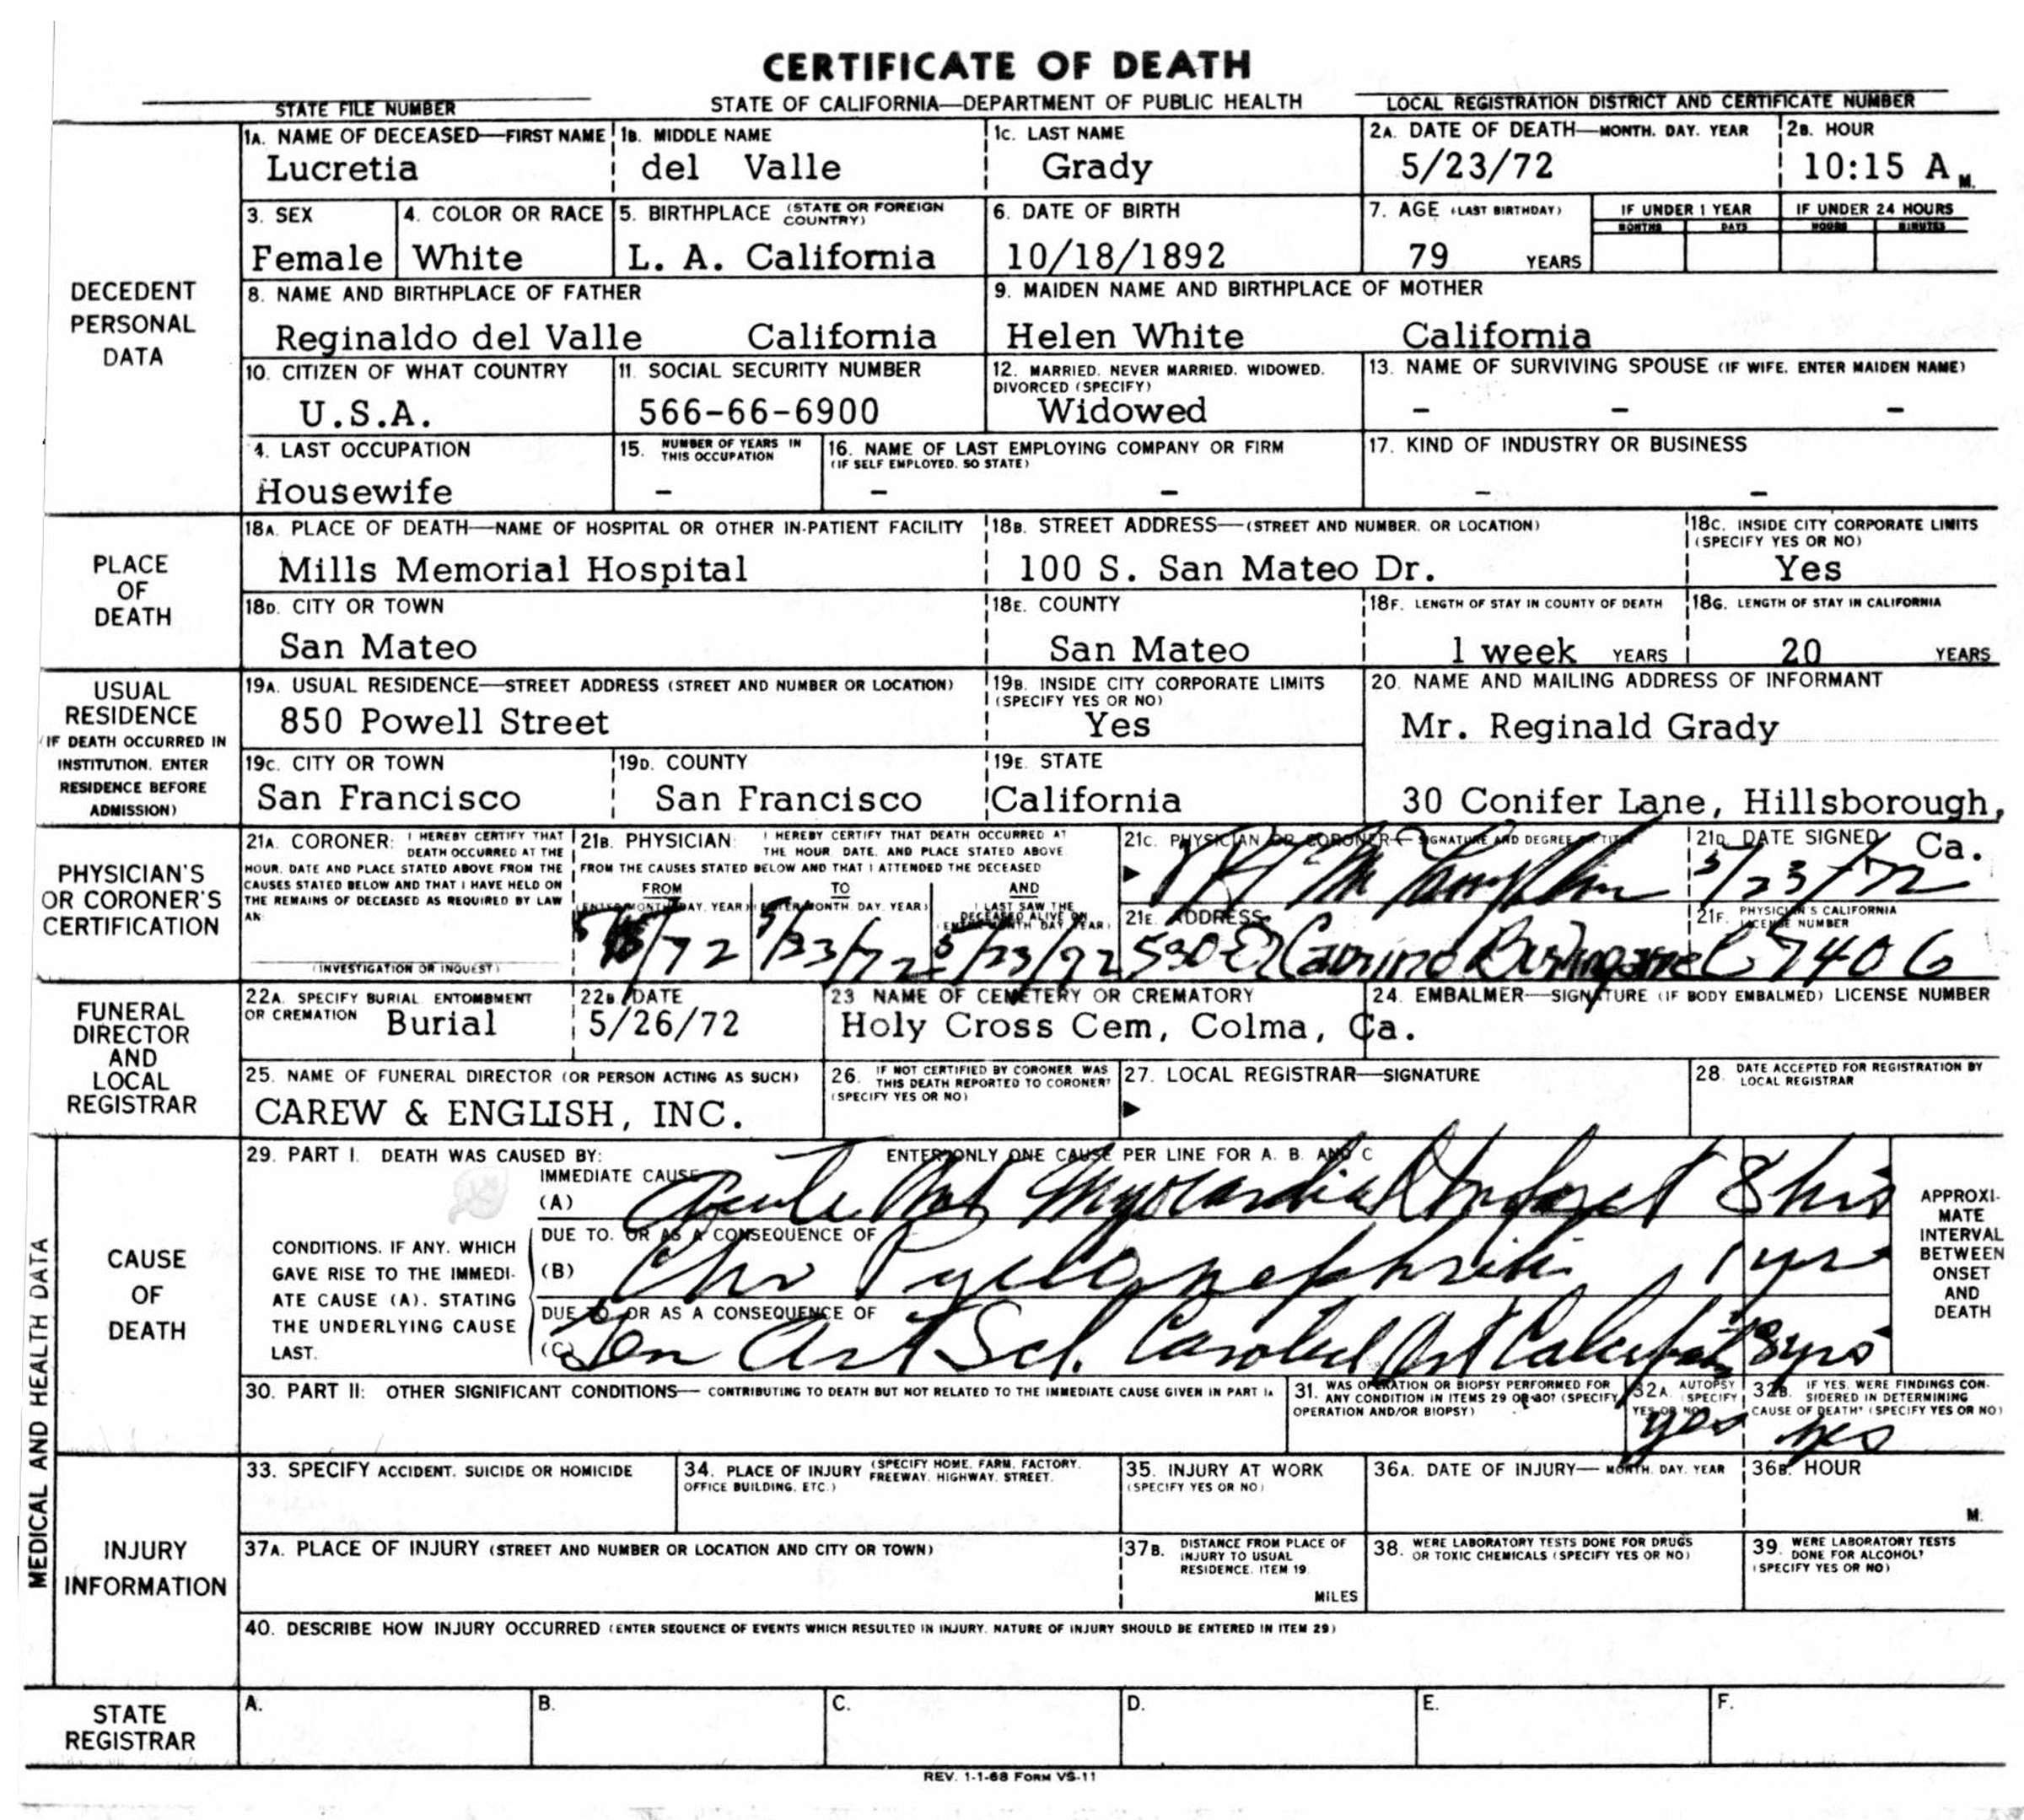 CERTIFICATE OF DEATH
STATE FILE NUMBER
STATE OF CALIFORNIA—DEPARTMENT OF PUBLIC HEALTH
LOCAL REGISTRATION DISTRICT AND CERTIFICATE NUMBER
DECEDENT PERSONAL DATA
1A. NAME OF DECEASED—FIRST NAME 1B. MIDDLE NAME 1C. LAST NAME 2A. DATE OF DEATH—MONTH. DAY. YEAR 2B. HOUR
Lucretia del Valle Grady 5/23/72 10:15 A M.
3. SEX 4. COLOR OR RACE 5. BIRTHPLACE (STATE OR FOREIGN COUNTRY) 6. DATE OF BIRTH 7. AGE (LAST BIRTHDAY) IF UNDER 1 YEAR IF UNDER 24 HOURS
MONTHS DAYS HOURS MINUTES
Female White L. A. California 10/18/1892 79 YEARS
8. NAME AND BIRTHPLACE OF FATHER 9. MAIDEN NAME AND BIRTHPLACE OF MOTHER
Reginaldo del Valle California Helen White California
10. CITIZEN OF WHAT COUNTRY 11. SOCIAL SECURITY NUMBER 12. MARRIED. NEVER MARRIED. WIDOWED. DIVORCED (SPECIFY) 13. NAME OF SURVIVING SPOUSE (IF WIFE. ENTER MAIDEN NAME)
U.S.A. 566-66-6900 Widowed - - -
4. LAST OCCUPATION 15. NUMBER OF YEARS IN THIS OCCUPATION 16. NAME OF LAST EMPLOYING COMPANY OR FIRM (IF SELF EMPLOYED. SO STATE) 17. KIND OF INDUSTRY OR BUSINESS
Housewife - - - - -
PLACE OF DEATH
18A. PLACE OF DEATH—NAME OF HOSPITAL OR OTHER IN-PATIENT FACILITY 18B. STREET ADDRESS—(STREET AND NUMBER. OR LOCATION) 18C. INSIDE CITY CORPORATE LIMITS (SPECIFY YES OR NO)
Mills Memorial Hospital 100 S. San Mateo Dr. Yes
18D. CITY OR TOWN 18E. COUNTY 18F. LENGTH OF STAY IN COUNTY OF DEATH 18G. LENGTH OF STAY IN CALIFORNIA
San Mateo San Mateo 1 week YEARS 20 YEARS
USUAL RESIDENCE
(IF DEATH OCCURRED IN INSTITUTION. ENTER RESIDENCE BEFORE ADMISSION)
19A. USUAL RESIDENCE—STREET ADDRESS (STREET AND NUMBER OR LOCATION) 19B. INSIDE CITY CORPORATE LIMITS (SPECIFY YES OR NO) 20. NAME AND MAILING ADDRESS OF INFORMANT
850 Powell Street Yes Mr. Reginald Grady
19C. CITY OR TOWN 19D. COUNTY 19E. STATE
San Francisco San Francisco California 30 Conifer Lane, Hillsborough, Ca.
PHYSICIAN'S OR CORONER'S CERTIFICATION
21A. CORONER: I HEREBY CERTIFY THAT DEATH OCCURRED AT THE HOUR. DATE AND PLACE STATED ABOVE FROM THE CAUSES STATED BELOW AND THAT I HAVE HELD ON THE REMAINS OF DECEASED AS REQUIRED BY LAW AN
(INVESTIGATION OR INQUEST)
21B. PHYSICIAN: I HEREBY CERTIFY THAT DEATH OCCURRED AT THE HOUR. DATE. AND PLACE STATED ABOVE FROM THE CAUSES STATED BELOW AND THAT I ATTENDED THE DECEASED
FROM TO AND
(ENTER MONTH. DAY. YEAR) (ENTER MONTH. DAY. YEAR) I LAST SAW THE DECEASED ALIVE ON (ENTER MONTH DAY YEAR)
/72 5/23/72 5/23/72
21C. PHYSICIAN OR CORONER—SIGNATURE AND DEGREE OR TITLE
21D. DATE SIGNED
5/23/72
21E. ADDRESS
530 El Camino Burlingame
21F. PHYSICIAN'S CALIFORNIA LICENSE NUMBER
C7406
FUNERAL DIRECTOR AND LOCAL REGISTRAR
22A. SPECIFY BURIAL ENTOMBMENT OR CREMATION 22B. DATE 23 NAME OF CEMETERY OR CREMATORY 24. EMBALMER—SIGNATURE (IF BODY EMBALMED) LICENSE NUMBER
Burial 5/26/72 Holy Cross Cem, Colma, Ca.
25. NAME OF FUNERAL DIRECTOR (OR PERSON ACTING AS SUCH) 26. IF NOT CERTIFIED BY CORONER WAS THIS DEATH REPORTED TO CORONER? (SPECIFY YES OR NO) 27. LOCAL REGISTRAR—SIGNATURE 28. DATE ACCEPTED FOR REGISTRATION BY LOCAL REGISTRAR
CAREW & ENGLISH, INC.
MEDICAL AND HEALTH DATA
CAUSE OF DEATH
29. PART I. DEATH WAS CAUSED BY: ENTER ONLY ONE CAUSE PER LINE FOR A. B. AND C
IMMEDIATE CAUSE
(A) Acute Myocardial Infarct 8 hrs
DUE TO. OR AS A CONSEQUENCE OF
(B) Chr Pyelonephritis 1 yr
DUE TO. OR AS A CONSEQUENCE OF
(C) Gen Art Scl. Carotid Art 8 yrs
CONDITIONS. IF ANY. WHICH GAVE RISE TO THE IMMEDIATE CAUSE (A). STATING THE UNDERLYING CAUSE LAST.
APPROXIMATE INTERVAL BETWEEN ONSET AND DEATH
30. PART II: OTHER SIGNIFICANT CONDITIONS—CONTRIBUTING TO DEATH BUT NOT RELATED TO THE IMMEDIATE CAUSE GIVEN IN PART IA
31. WAS OPERATION OR BIOPSY PERFORMED FOR ANY CONDITION IN ITEMS 29 OR 30? (SPECIFY OPERATION AND/OR BIOPSY)
32A. AUTOPSY (SPECIFY YES OR NO)
yes
32B. IF YES. WERE FINDINGS CONSIDERED IN DETERMINING CAUSE OF DEATH? (SPECIFY YES OR NO)
yes
INJURY INFORMATION
33. SPECIFY ACCIDENT. SUICIDE OR HOMICIDE 34. PLACE OF INJURY (SPECIFY HOME. FARM. FACTORY. FREEWAY. HIGHWAY. STREET. OFFICE BUILDING. ETC.) 35. INJURY AT WORK (SPECIFY YES OR NO) 36A. DATE OF INJURY—MONTH. DAY. YEAR 36B. HOUR
M.
37A. PLACE OF INJURY (STREET AND NUMBER OR LOCATION AND CITY OR TOWN) 37B. DISTANCE FROM PLACE OF INJURY TO USUAL RESIDENCE. ITEM 19. MILES 38. WERE LABORATORY TESTS DONE FOR DRUGS OR TOXIC CHEMICALS (SPECIFY YES OR NO) 39. WERE LABORATORY TESTS DONE FOR ALCOHOL? (SPECIFY YES OR NO)
40. DESCRIBE HOW INJURY OCCURRED (ENTER SEQUENCE OF EVENTS WHICH RESULTED IN INJURY. NATURE OF INJURY SHOULD BE ENTERED IN ITEM 29)
STATE REGISTRAR
A. B. C. D. E. F.
REV. 1-1-68 FORM VS-11